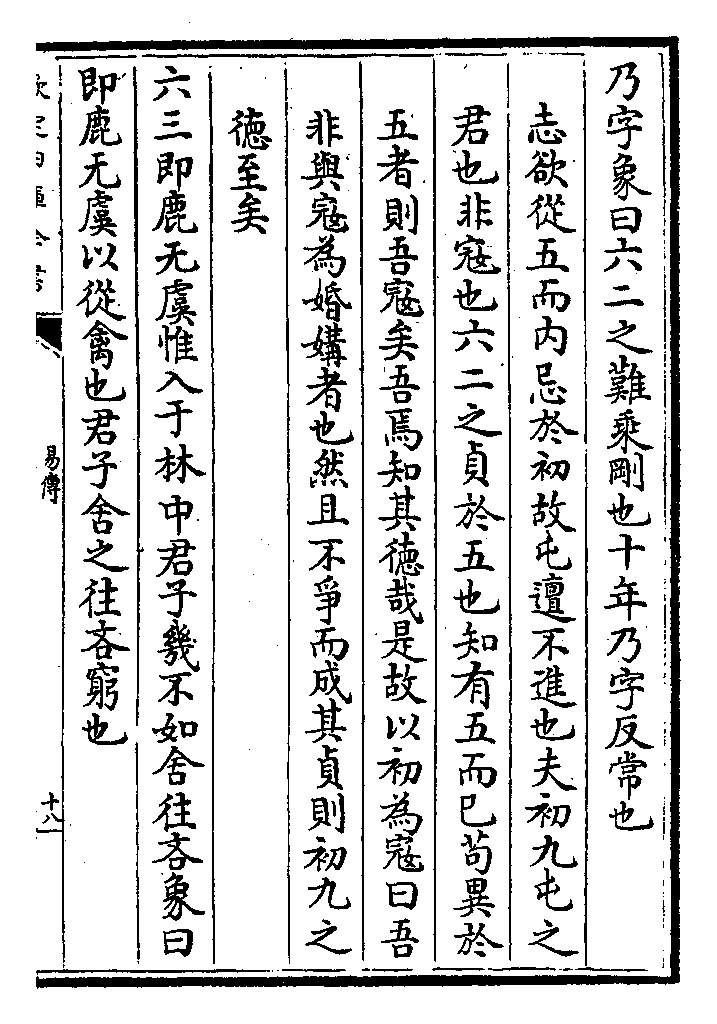 乃字象曰六二之難乘剛也十年乃字反常也
志欲從五而内忌於初故屯邅不進也夫初九屯之
君也非寇也六二之貞於五也知有五而已茍異於
五者則吾寇矣吾焉知其徳哉是故以初為寇曰吾
非與寇為婚媾者也然且不爭而成其貞則初九之
徳至矣
六三即鹿无虞惟入于林中君子幾不如舍往吝象曰
即鹿无虞以從禽也君子舍之往吝窮也
易傳
十八